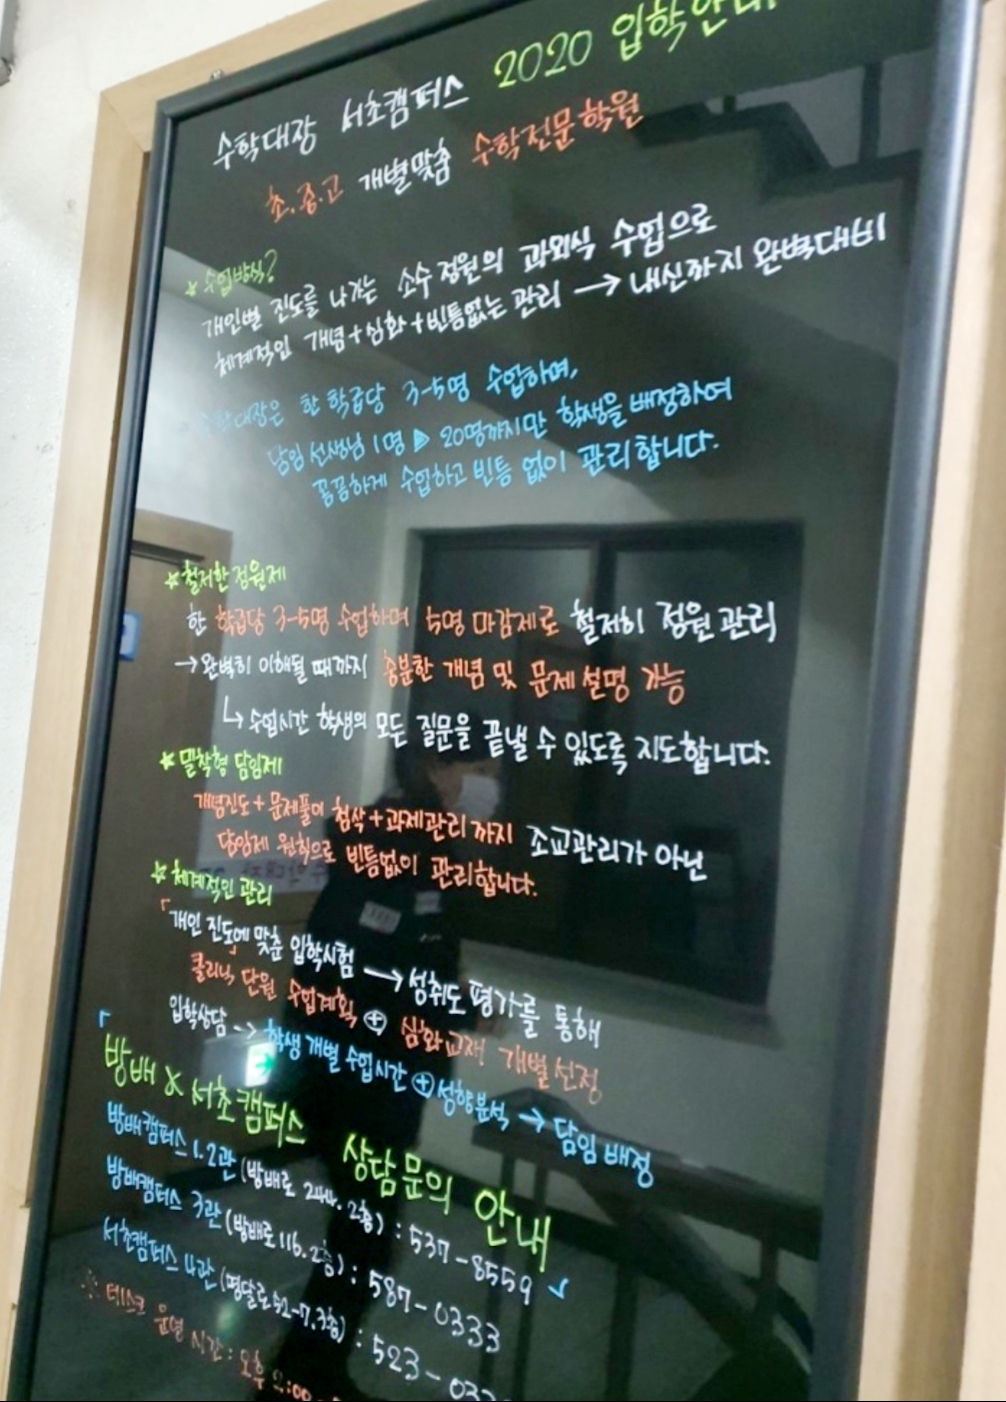 수학대장 서초캠퍼스 2020 입학안내
초.중.고 개별맞춤 수학전문학원
☆ 수업방식?
개인별 진도를 나가는 소수 정원의 과외식 수업으로
체계적인 개념+심화+빈틈없는 관리 → 내신까지 완벽대비
수학대장은 한 학급당 3-5명 수업하며,
담임 선생님 1명 ▶ 20명까지만 학생을 배정하여
꼼꼼하게 수업하고 빈틈 없이 관리합니다.
☆ 철저한 정원제
한 학급당 3-5명 수업하며 5명 마감제로 철저히 정원관리
→ 완벽히 이해될 때까지 충분한 개념 및 문제 설명 가능
↳ 수업시간 학생의 모든 질문을 끝낼 수 있도록 지도합니다.
☆ 밀착형 담임제
개념진도+문제풀이 첨삭+과제관리까지 조교관리가 아닌
담임제 원칙으로 빈틈없이 관리합니다.
☆ 체계적인 관리
「개인 진도에 맞춘 입학시험 → 성취도 평가를 통해
클리닉 단원 수업계획 ⊕ 심화교재 개별선정
입학상담 → 학생 개별 수업시간 ⊕ 성향분석 → 담임 배정
「방배 & 서초캠퍼스 상담문의 안내」
방배캠퍼스 1.2관 (방배로 244. 2층) : 537-8559
방배캠퍼스 3관 (방배로 116. 2층) : 587-0333
서초캠퍼스 4관 (명달로 52-7. 3층) : 523-033
※ 데스크 운영 시간 : 오후 2:00-